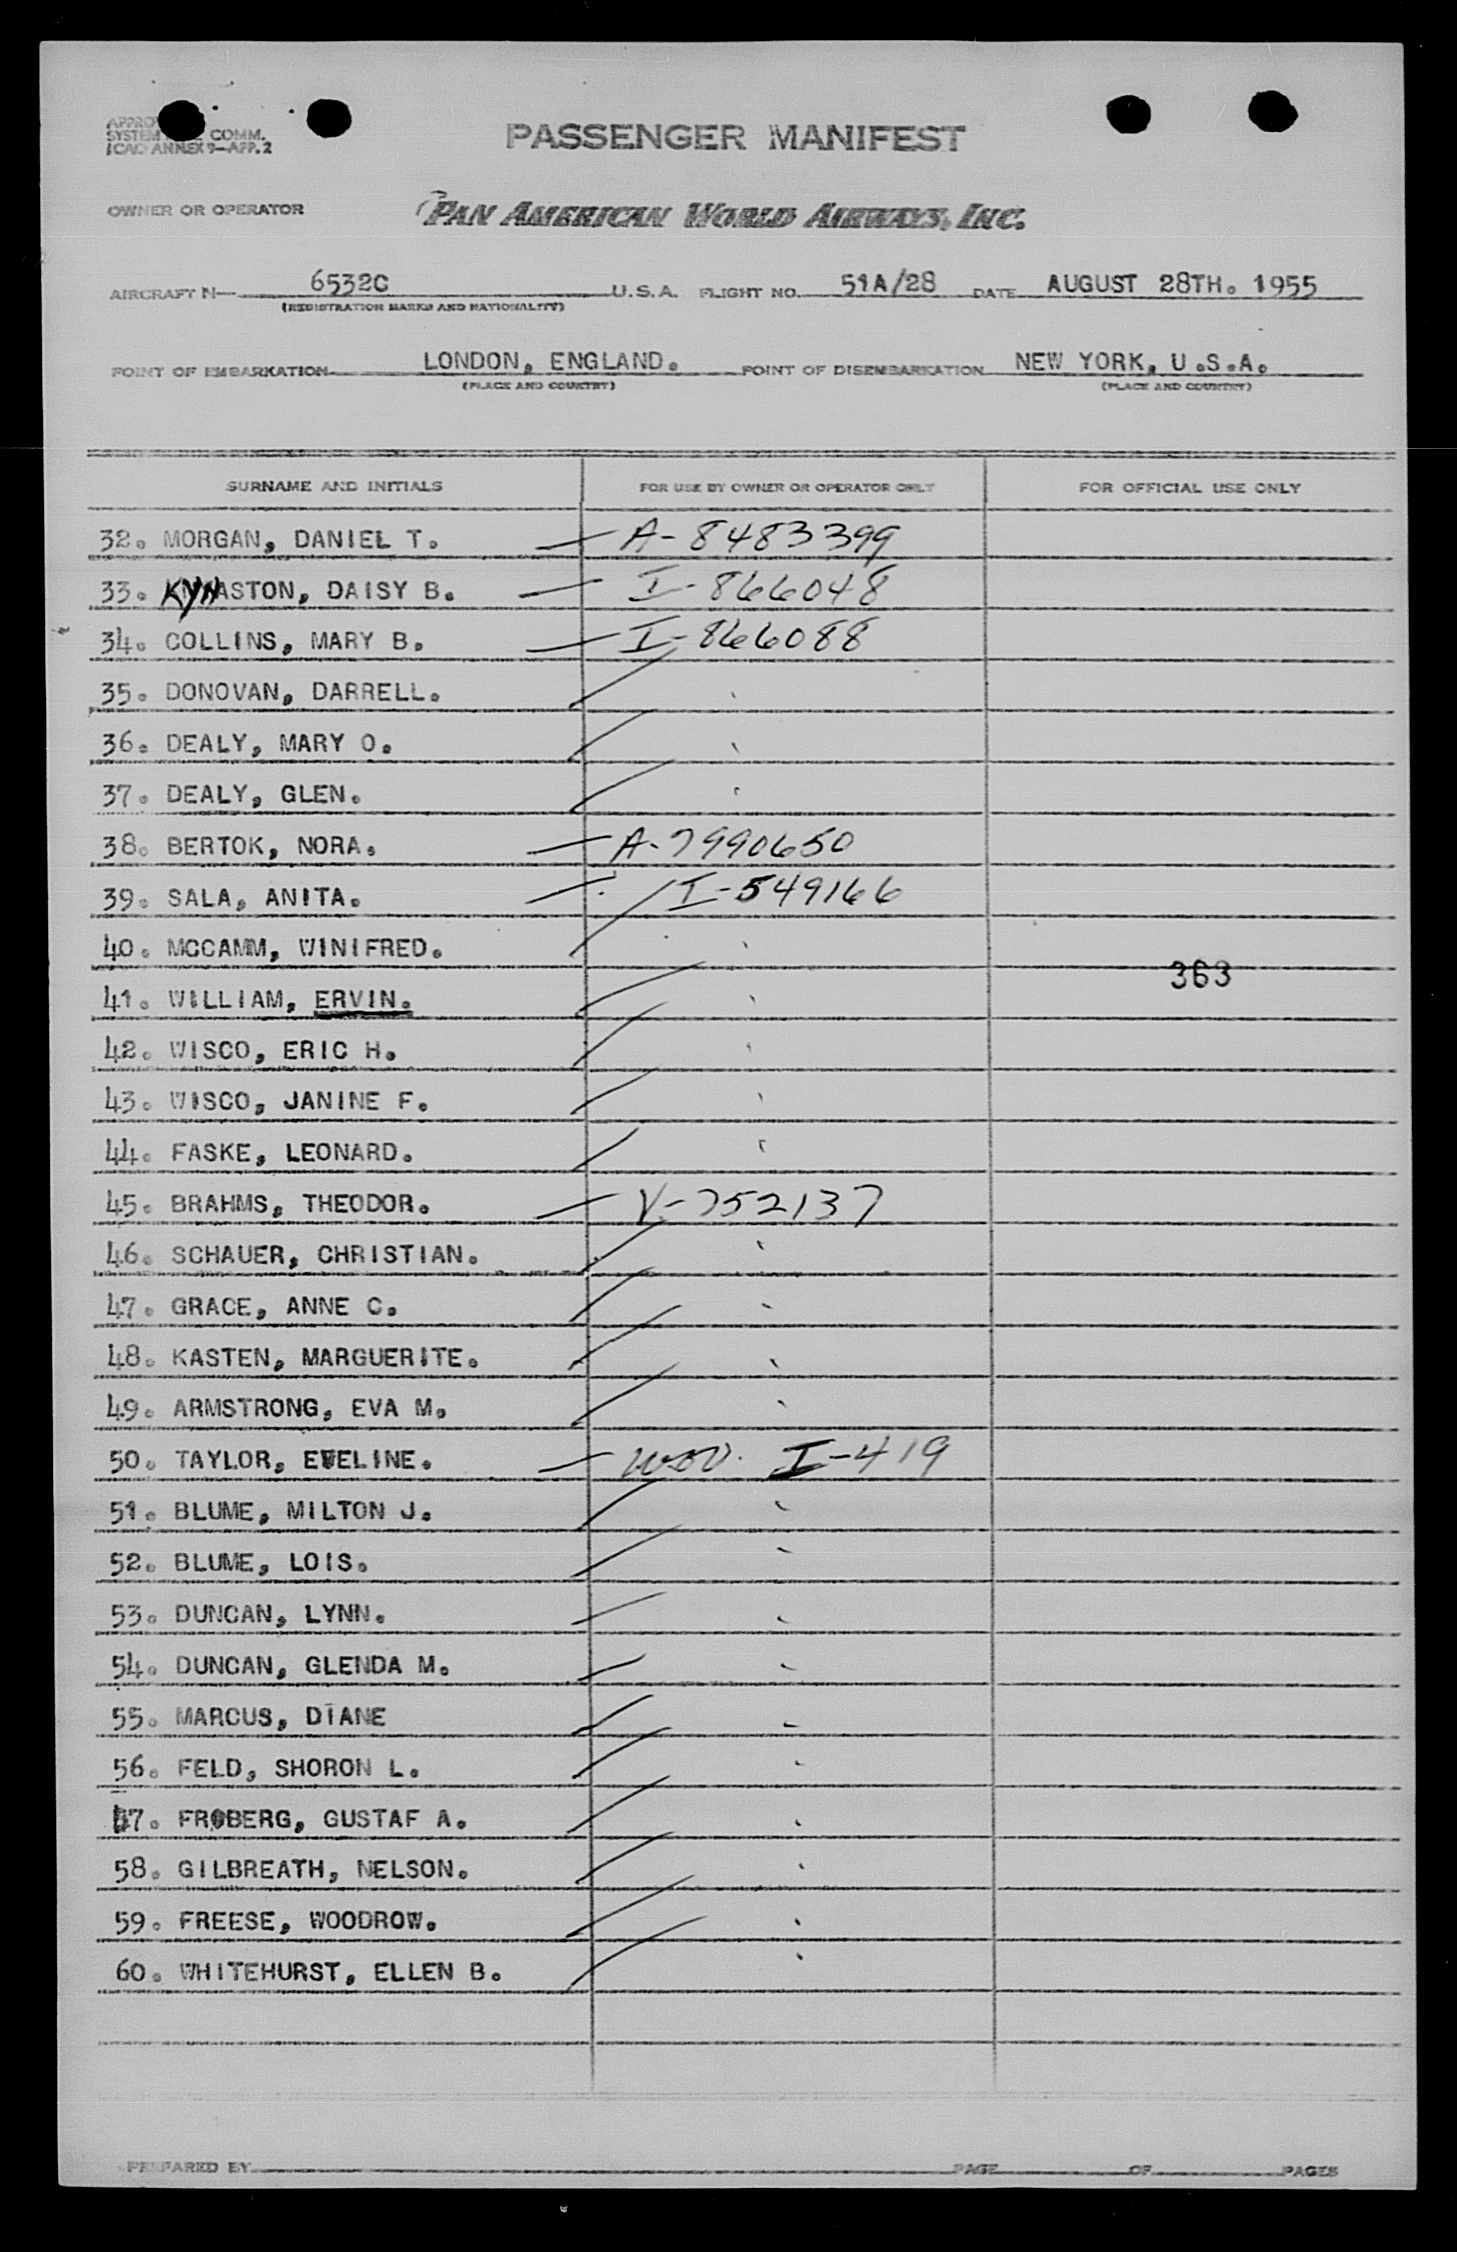 PASSENGER MANIFEST
SYSTEM COMM.
ICAO ANNEX 9-APP.2
OWNER OR OPERATOR PAN AMERICAN WORLD AIRWAYS, INC.
AIRCRAFT N- 6532C U.S.A. FLIGHT NO. 51A/28 DATE AUGUST 28TH. 1955
(REGISTRATION MARKS AND NATIONALITY)
POINT OF EMBARKATION LONDON, ENGLAND. POINT OF DISEMBARKATION NEW YORK, U.S.A.
(PLACE AND COUNTRY) (PLACE AND COUNTRY)
SURNAME AND INITIALS FOR USE BY OWNER OR OPERATOR ONLY FOR OFFICIAL USE ONLY
32. MORGAN, DANIEL T. A-8483399
33. KYNASTON, DAISY B. I-866048
34. COLLINS, MARY B. I-866088
35. DONOVAN, DARRELL.
36. DEALY, MARY O.
37. DEALY, GLEN.
38. BERTOK, NORA. A-7990650
39. SALA, ANITA. I-549166
40. MCCAMM, WINIFRED.
363
41. WILLIAM, ERVIN.
42. WISCO, ERIC H.
43. WISCO, JANINE F.
44. FASKE, LEONARD.
45. BRAHMS, THEODOR. V-752137
46. SCHAUER, CHRISTIAN.
47. GRACE, ANNE C.
48. KASTEN, MARGUERITE.
49. ARMSTRONG, EVA M.
50. TAYLOR, EVELINE. I-419
51. BLUME, MILTON J.
52. BLUME, LOIS.
53. DUNCAN, LYNN.
54. DUNCAN, GLENDA M.
55. MARCUS, DIANE
56. FELD, SHORON L.
57. FROBERG, GUSTAF A.
58. GILBREATH, NELSON.
59. FREESE, WOODROW.
60. WHITEHURST, ELLEN B.
PREPARED BY PAGE OF PAGES